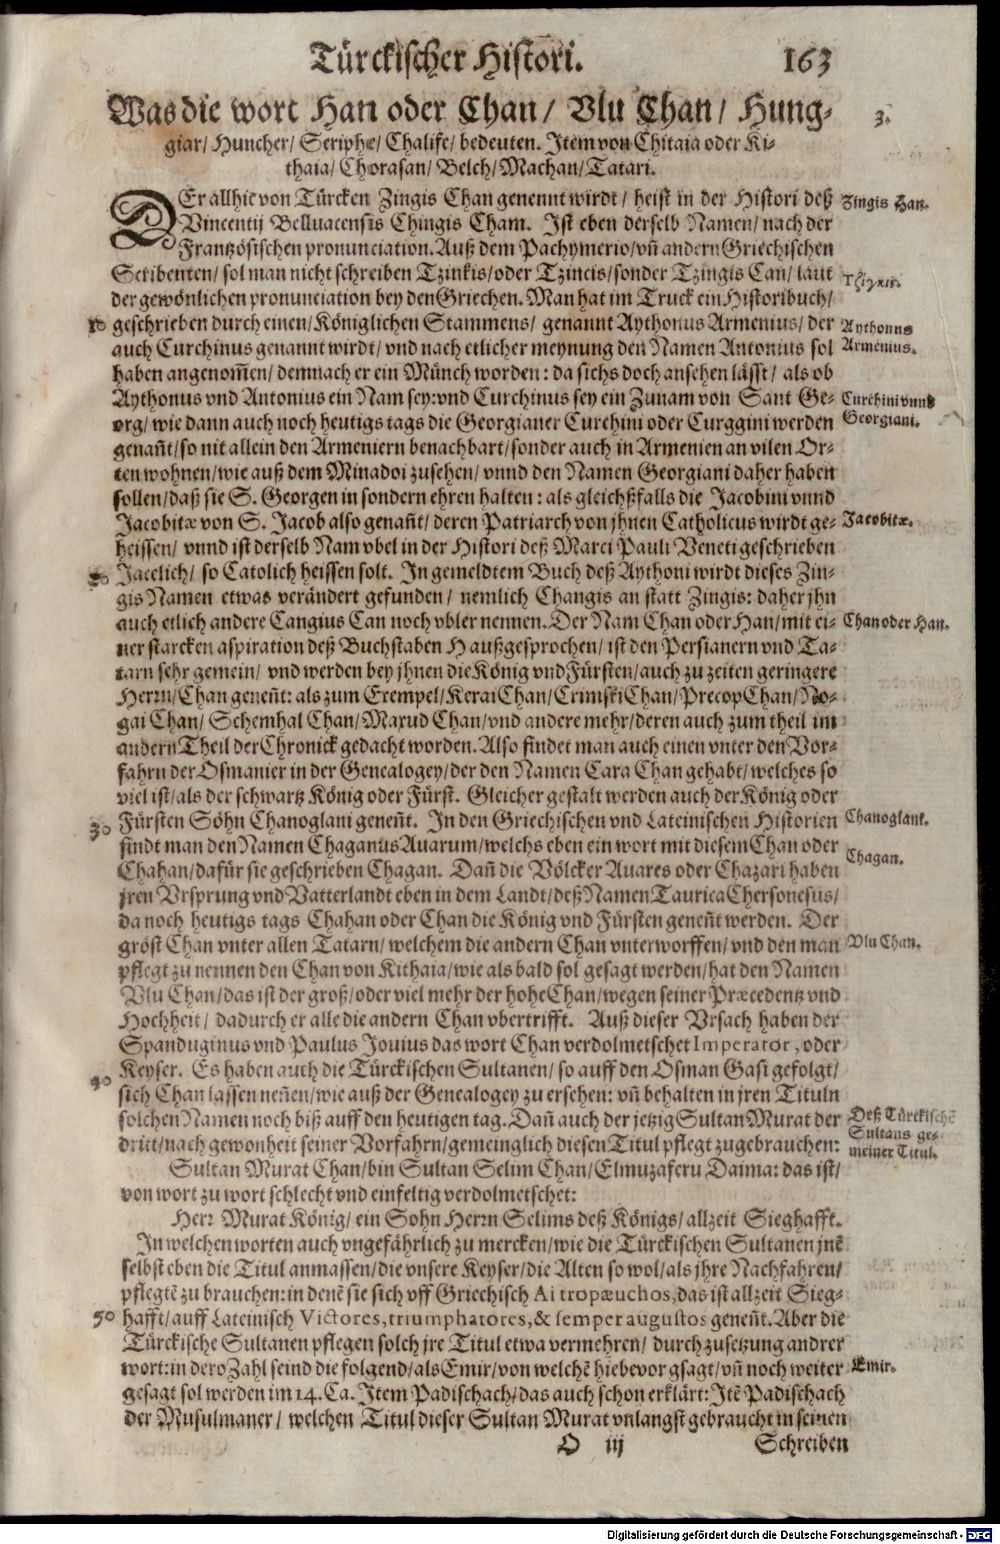 Türckischer Histori. 163
Was die wort Han oder Chan/ Vlu Chan/ Hung- 3.
giar/ Huncher/ Seriphe/ Chalife/ bedeuten. Item von Chitaia oder Ki-
thaia/ Chorasan/ Belch/ Machan/ Tatari.
DEr allhie von Türcken Zingis Chan genennt wirdt/ heist in der Histori deß Zingis Han.
Vincentij Belluacensis Chingis Cham. Ist eben derselb Namen/ nach der
Frantzösischen pronunciation. Auß dem Pachymerio/ vñ andern Griechischen
Scribenten/ sol man nicht schreiben Tzinkis/ oder Tzincis/ sonder Tzingis Can/ laut
der gewönlichen pronunciation bey den Griechen. Man hat im Truck ein Historibuch/
10 geschrieben durch einen/ Königlichen Stammens/ genannt Aythonus Armenius/ der Aythonus
auch Curchinus genannt wirdt/ vnd nach etlicher meynung den Namen Antonius sol Armenius.
haben angenom̃en/ demnach er ein Münch worden: da sichs doch ansehen lässt/ als ob
Aythonus vnd Antonius ein Nam sey: vnd Curchinus sey ein Zunam von Sant Ge- Curchini vnnd
org/ wie dann auch noch heutigs tags die Georgianer Curchini oder Curggini werden Georgiani.
genañt/ so nit allein den Armeniern benachbart/ sonder auch in Armenien an vilen Or-
ten wohnen/ wie auß dem Minadoi zusehen/ vnnd den Namen Georgiani daher haben
sollen/ daß sie S. Georgen in sondern ehren halten: als gleichßfalls die Jacobini vnnd
Jacobitæ von S. Jacob also genañt/ deren Patriarch von jhnen Catholicus wirdt ge- Jacobitæ.
heissen/ vnnd ist derselb Nam vbel in der Histori deß Marci Pauli Veneti geschrieben
20 Jacelich/ so Catolich heissen solt. In gemeldtem Buch deß Aythoni wirdt dieses Zin-
gis Namen etwas verändert gefunden/ nemlich Changis an statt Zingis: daher jhn
auch etlich andere Cangius Can noch vbler nennen. Der Nam Chan oder Han/ mit ei- Chan oder Han.
ner starcken aspiration deß Buchstaben H außgesprochen/ ist den Persianern vnd Ta-
tarn sehr gemein/ vnd werden bey jhnen die König vnd Fürsten/ auch zu zeiten geringere
Herrn/ Chan geneñt: als zum Exempel/ Kerai Chan/ Crimski Chan/ Precop Chan/ No-
gai Chan/ Schemhal Chan/ Maxud Chan/ vnd andere mehr/ deren auch zum theil im
andern Theil der Chronick gedacht worden. Also findet man auch einen vnter den Vor-
fahrn der Osmanier in der Genealogey/ der den Namen Cara Chan gehabt/ welches so
viel ist/ als der schwartz König oder Fürst. Gleicher gestalt werden auch der König oder
30 Fürsten Söhn Chanoglani geneñt. In den Griechischen vnd Lateinischen Historien Chanoglani.
findt man den Namen Chaganus Auarum/ welchs eben ein wort mit diesem Chan oder
Chahan/ dafür sie geschrieben Chagan. Dañ die Völcker Auares oder Chazari haben Chagan.
jren Vrsprung vnd Vatterlandt eben in dem Landt/ deß Namen Taurica Chersonesus/
da noch heutigs tags Chahan oder Chan die König vnd Fürsten geneñt werden. Der
gröst Chan vnter allen Tatarn/ welchem die andern Chan vnterworffen/ vnd den man Vlu Chan.
pflegt zu nennen den Chan von Kithaia/ wie als bald sol gesagt werden/ hat den Namen
Vlu Chan/ das ist der groß/ oder viel mehr der hohe Chan/ wegen seiner Præcedentz vnd
Hochheit/ dadurch er alle die andern Chan vbertrifft. Auß dieser Vrsach haben der
Spanduginus vnd Paulus Jouius das wort Chan verdolmetschet Imperator, oder
40 Keyser. Es haben auch die Türckischen Sultanen/ so auff den Osman Gasi gefolgt/
sich Chan lassen neñen/ wie auß der Genealogey zu ersehen: vñ behalten in jren Tituln
solchen Namen noch biß auff den heutigen tag. Dañ auch der jetzig Sultan Murat der Deß Türckischẽ
dritt/ nach gewonheit seiner Vorfahrn/ gemeinglich diesen Titul pflegt zugebrauchen: Sultans ge-
meiner Titul.
Sultan Murat Chan/ bin Sultan Selim Chan/ Elmuzaferu Daima: das ist/
von wort zu wort schlecht vnd einfeltig verdolmetschet:
Herr Murat König/ ein Sohn Herrn Selims deß Königs/ allzeit Sieghafft.
In welchen worten auch vngefährlich zu mercken/ wie die Türckischen Sultanen jnẽ
selbst eben die Titul anmassen/ die vnsere Keyser/ die Alten so wol/ als jhre Nachfahren/
pflegtẽ zu brauchen: in denẽ sie sich vff Griechisch Aitropæuchos, das ist allzeit Sieg-
50 hafft/ auff Lateinisch Victores, triumphatores, & semper augustos geneñt. Aber die
Türckische Sultanen pflegen solch jre Titul etwa vermehren/ durch zusetzung andrer
wort: in dero Zahl seind die folgend/ als Emir/ von welchẽ hiebevor gsagt/ vñ noch weiter Emir.
gesagt sol werden im 14. Ca. Item Padischach/ das auch schon erklärt: Itẽ Padischach
der Musulmaner/ welchen Titul dieser Sultan Murat vnlangst gebraucht in seinen
O iij Schreiben
Digitalisierung gefördert durch die Deutsche Forschungsgemeinschaft - DFG